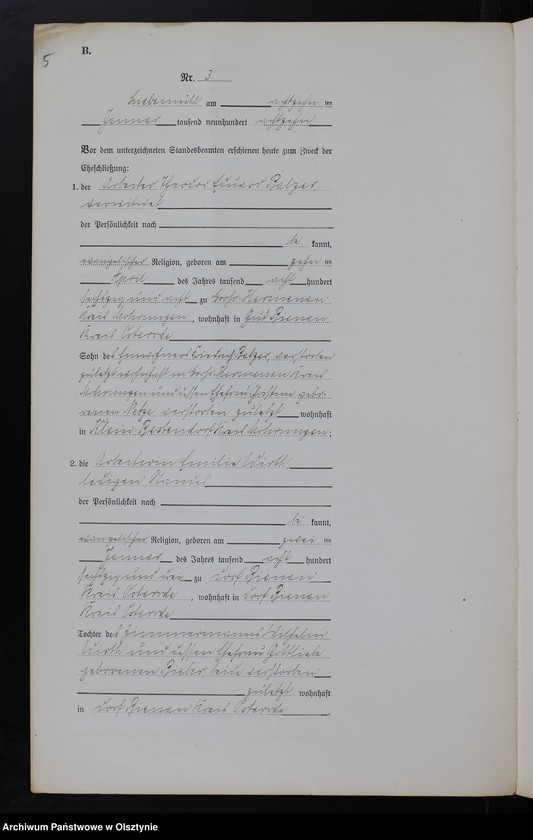 5
B.
Nr. 3
Liebemühl am achtzehn ten
Januar tausend neunhundert achtzehn
Vor dem unterzeichneten Standesbeamten erschienen heute zum Zweck der
Eheschließung:
1. der Arbeiter Theodor Eduard Balzer
verwitwet
der Persönlichkeit nach
be kannt,
evangelischer Religion, geboren am zehn ten
April des Jahres tausend acht hundert
sechszig und acht zu Groß Hermenau
Kreis Mohrungen, wohnhaft in Gut Bienau
Kreis Osterode
Sohn des Friedrich Balzer, verstorben
zuletzt wohnhaft in Groß Hermenau Kreis
Mohrungen und dessen Ehefrau gebo-
renen verstorben zuletzt wohnhaft
in Klein Bestendorf Kreis Mohrungen;
2. die Arbeiterin Emilie Wirth
ledigen Standes
der Persönlichkeit nach
be kannt,
evangelischer Religion, geboren am zwei ten
Januar des Jahres tausend acht hundert
sechszig und drei zu Dorf Bienau
Kreis Osterode, wohnhaft in Dorf Bienau
Kreis Osterode
Tochter des Zimmermanns Wilhelm
Wirth und dessen Ehefrau Gottliebe
geborenen Bieber beide verstorben
zuletzt wohnhaft
in Dorf Bienau Kreis Osterode.
Archiwum Państwowe w Olsztynie